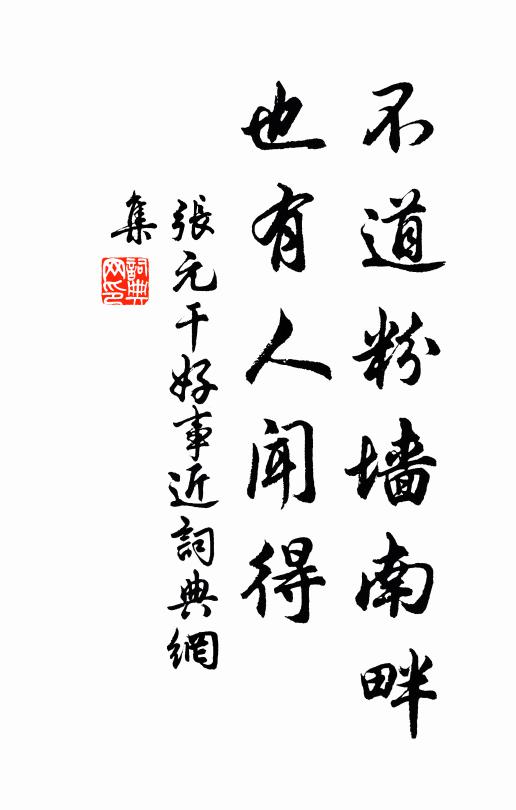 不道粉墙南畔
也有人闻得
張元干好事近詞典網
集
詞典网印